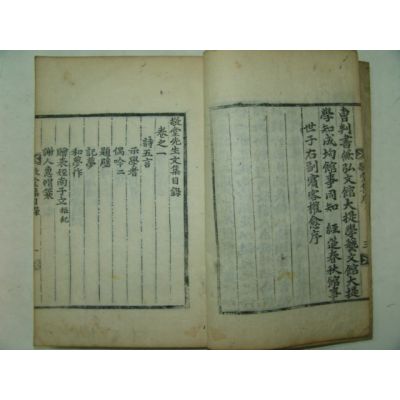 曹判書兼弘文館大提學藝文館大提
學知成均館事同知 經筵春秋館事
世子右副賓客權愈序
三
敬堂先生文集目錄
卷之一
詩五言
示學者
偶吟二
題壁
記夢
和夢作
贈表姪南子立
謝人惠
敬堂集目錄